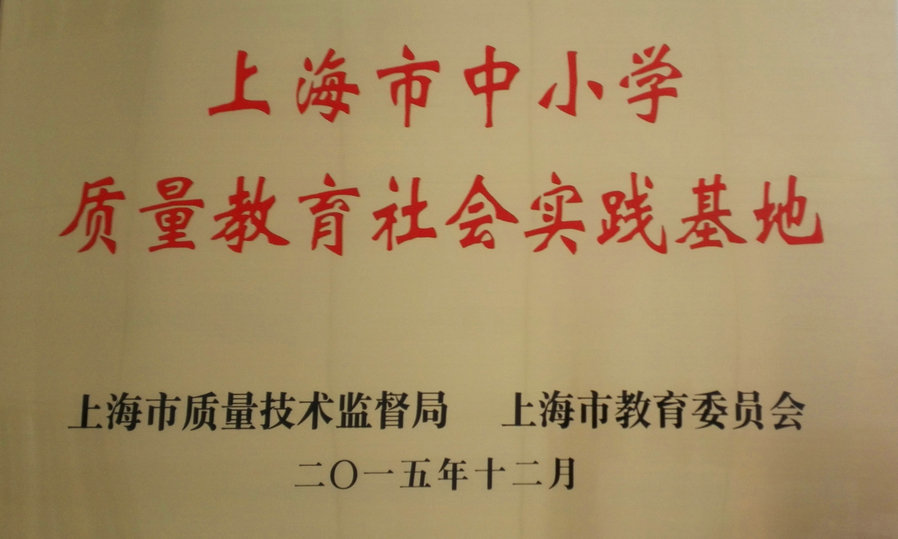 上海市中小学
质量教育社会实践基地
上海市质量技术监督局 上海市教育委员会
二〇一五年十二月